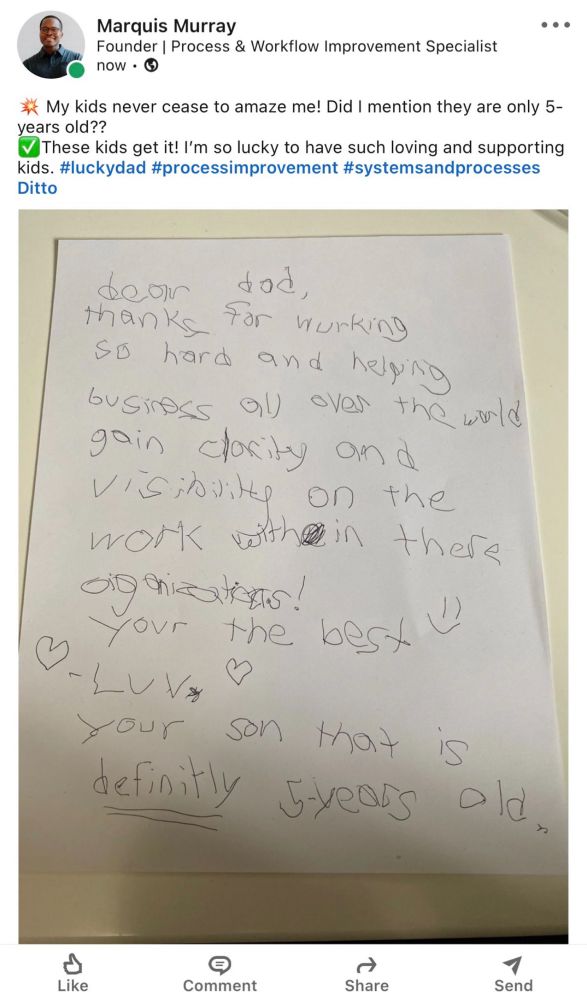 Marquis Murray
Founder | Process & Workflow Improvement Specialist
now •
💥 My kids never cease to amaze me! Did I mention they are only 5-
years old??
✅These kids get it! I'm so lucky to have such loving and supporting
kids. #luckydad #processimprovement #systemsandprocesses
Ditto
dear dad,
thanks for wurking
so hard and helping
business all over the world
gain clarity and
visibility on the
work within there
organizations!
your the best
-LUV,
your son that is
definitly 5-years old.
Like
Comment
Share
Send